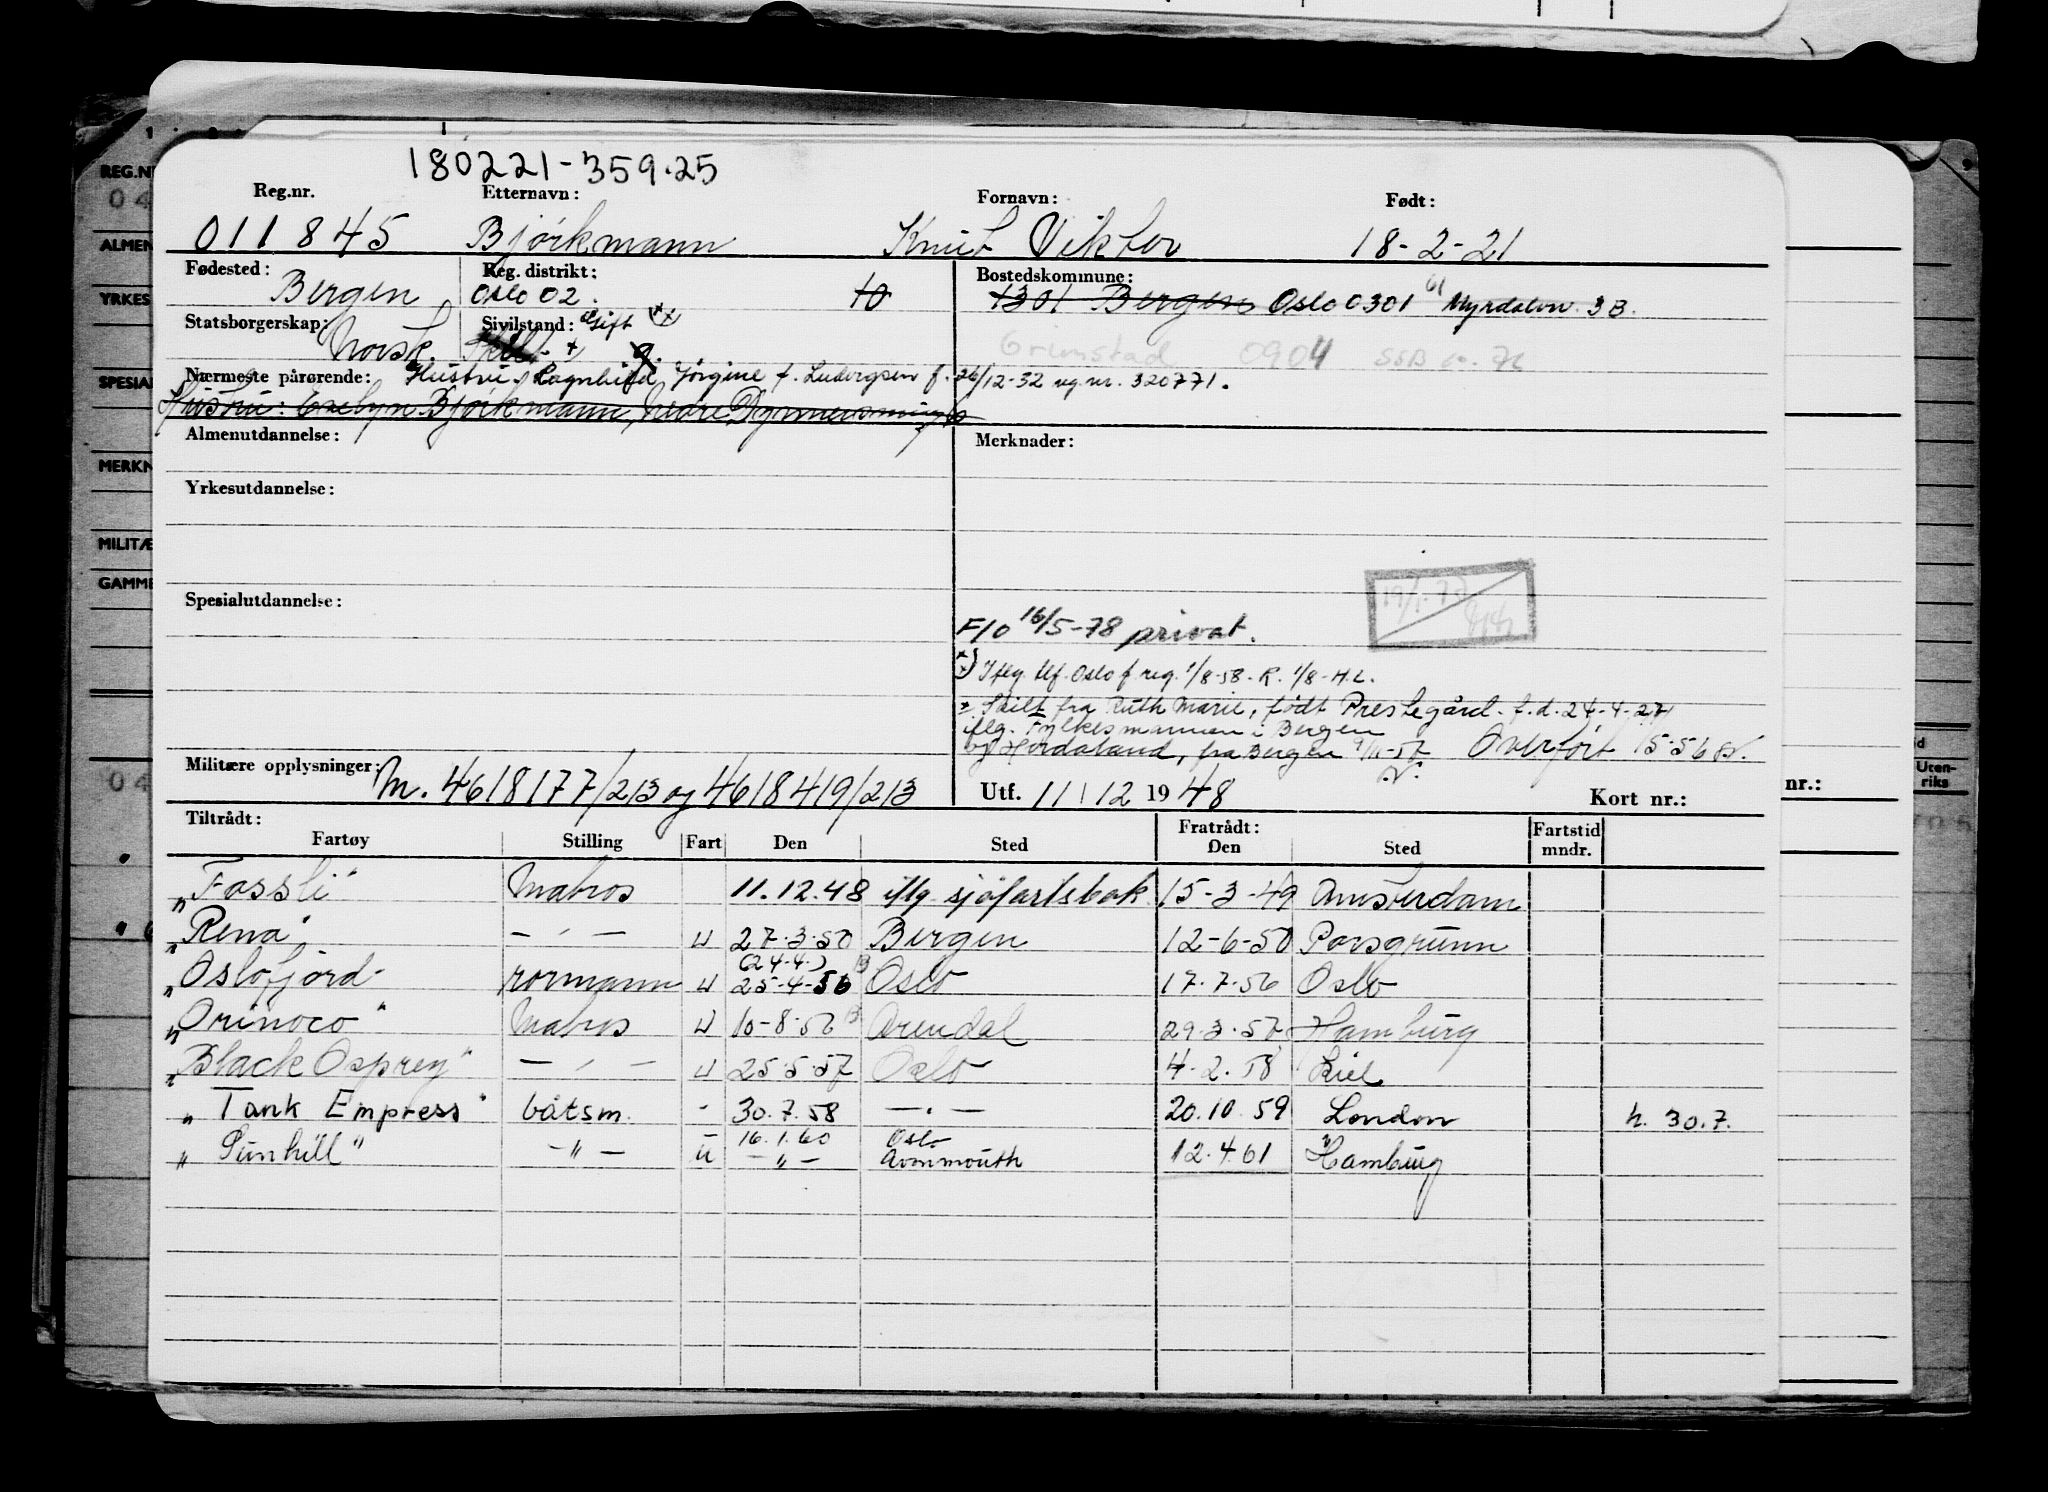 180221-359.25
Reg.nr. Etternavn: Fornavn: Født:
011845 Bjørkmann Knut Viktor 18-2-21
Fødested: Reg. distrikt: Bostedskommune:
Bergen Oslo 02. 10 1301 Bergen Oslo 0301 Myrdalvn. 3B.
Statsborgerskap: Sivilstand: Gift
Norsk. Skilt g.
Grimstad 0904 SSB
Nærmeste pårørende: Hustru: Ragnhild Jørgine f. Ludvigsen f. 26/12-32 reg nr. 320771.
Hustru: Evelyn Bjørkmann, Nedre
Almenutdannelse: Merknader:
Yrkesutdannelse:
Spesialutdannelse:
F10 16/5-78 privat.
Iflg. tlf. Oslo f reg. 1/8-58. R. 1/8-H.L.
* Skilt fra Ruth Marie, født Prestegård. f.d. 24-4-27
iflg. Fylkesmannen i Bergen
og Hordaland, fra Bergen 9/11-57 Overført 15-5-56
Militære opplysninger: M. 4618177/213 og 4618419/213 Utf. 11/12 1948 Kort nr.:
Tiltrådt: Fratrådt: Fartstid
Fartøy Stilling Fart Den Sted Den Sted mndr.
"Fossli" Matros 11.12.48 iflg sjøfartsbok 15-3-49 Amsterdam
"Rena" — " — u 27.3.50 Bergen 12-6-50 Porsgrunn
(24.4.)
"Oslofjord" rormann u 25-4-56 Oslo 17.7.56 Oslo
"Orinoco" Matros u 10-8-56 Arendal 29.3.57 Hamburg
"Black Osprey" — " — u 25.5.57 Oslo 4.2.58 Kiel
"Tank Empress" båtsm. - 30.7.58 — " — 20.10.59 London h. 30.7.
16.1.60 Oslo
"Sunhill" — " — u — " — Avonmouth 12.4.61 Hamburg
REG.N
04
ALMEN
YRKES
SPESIA
MERKN
MILITÆ
GAMME
04
Uten-
riks
nr.: